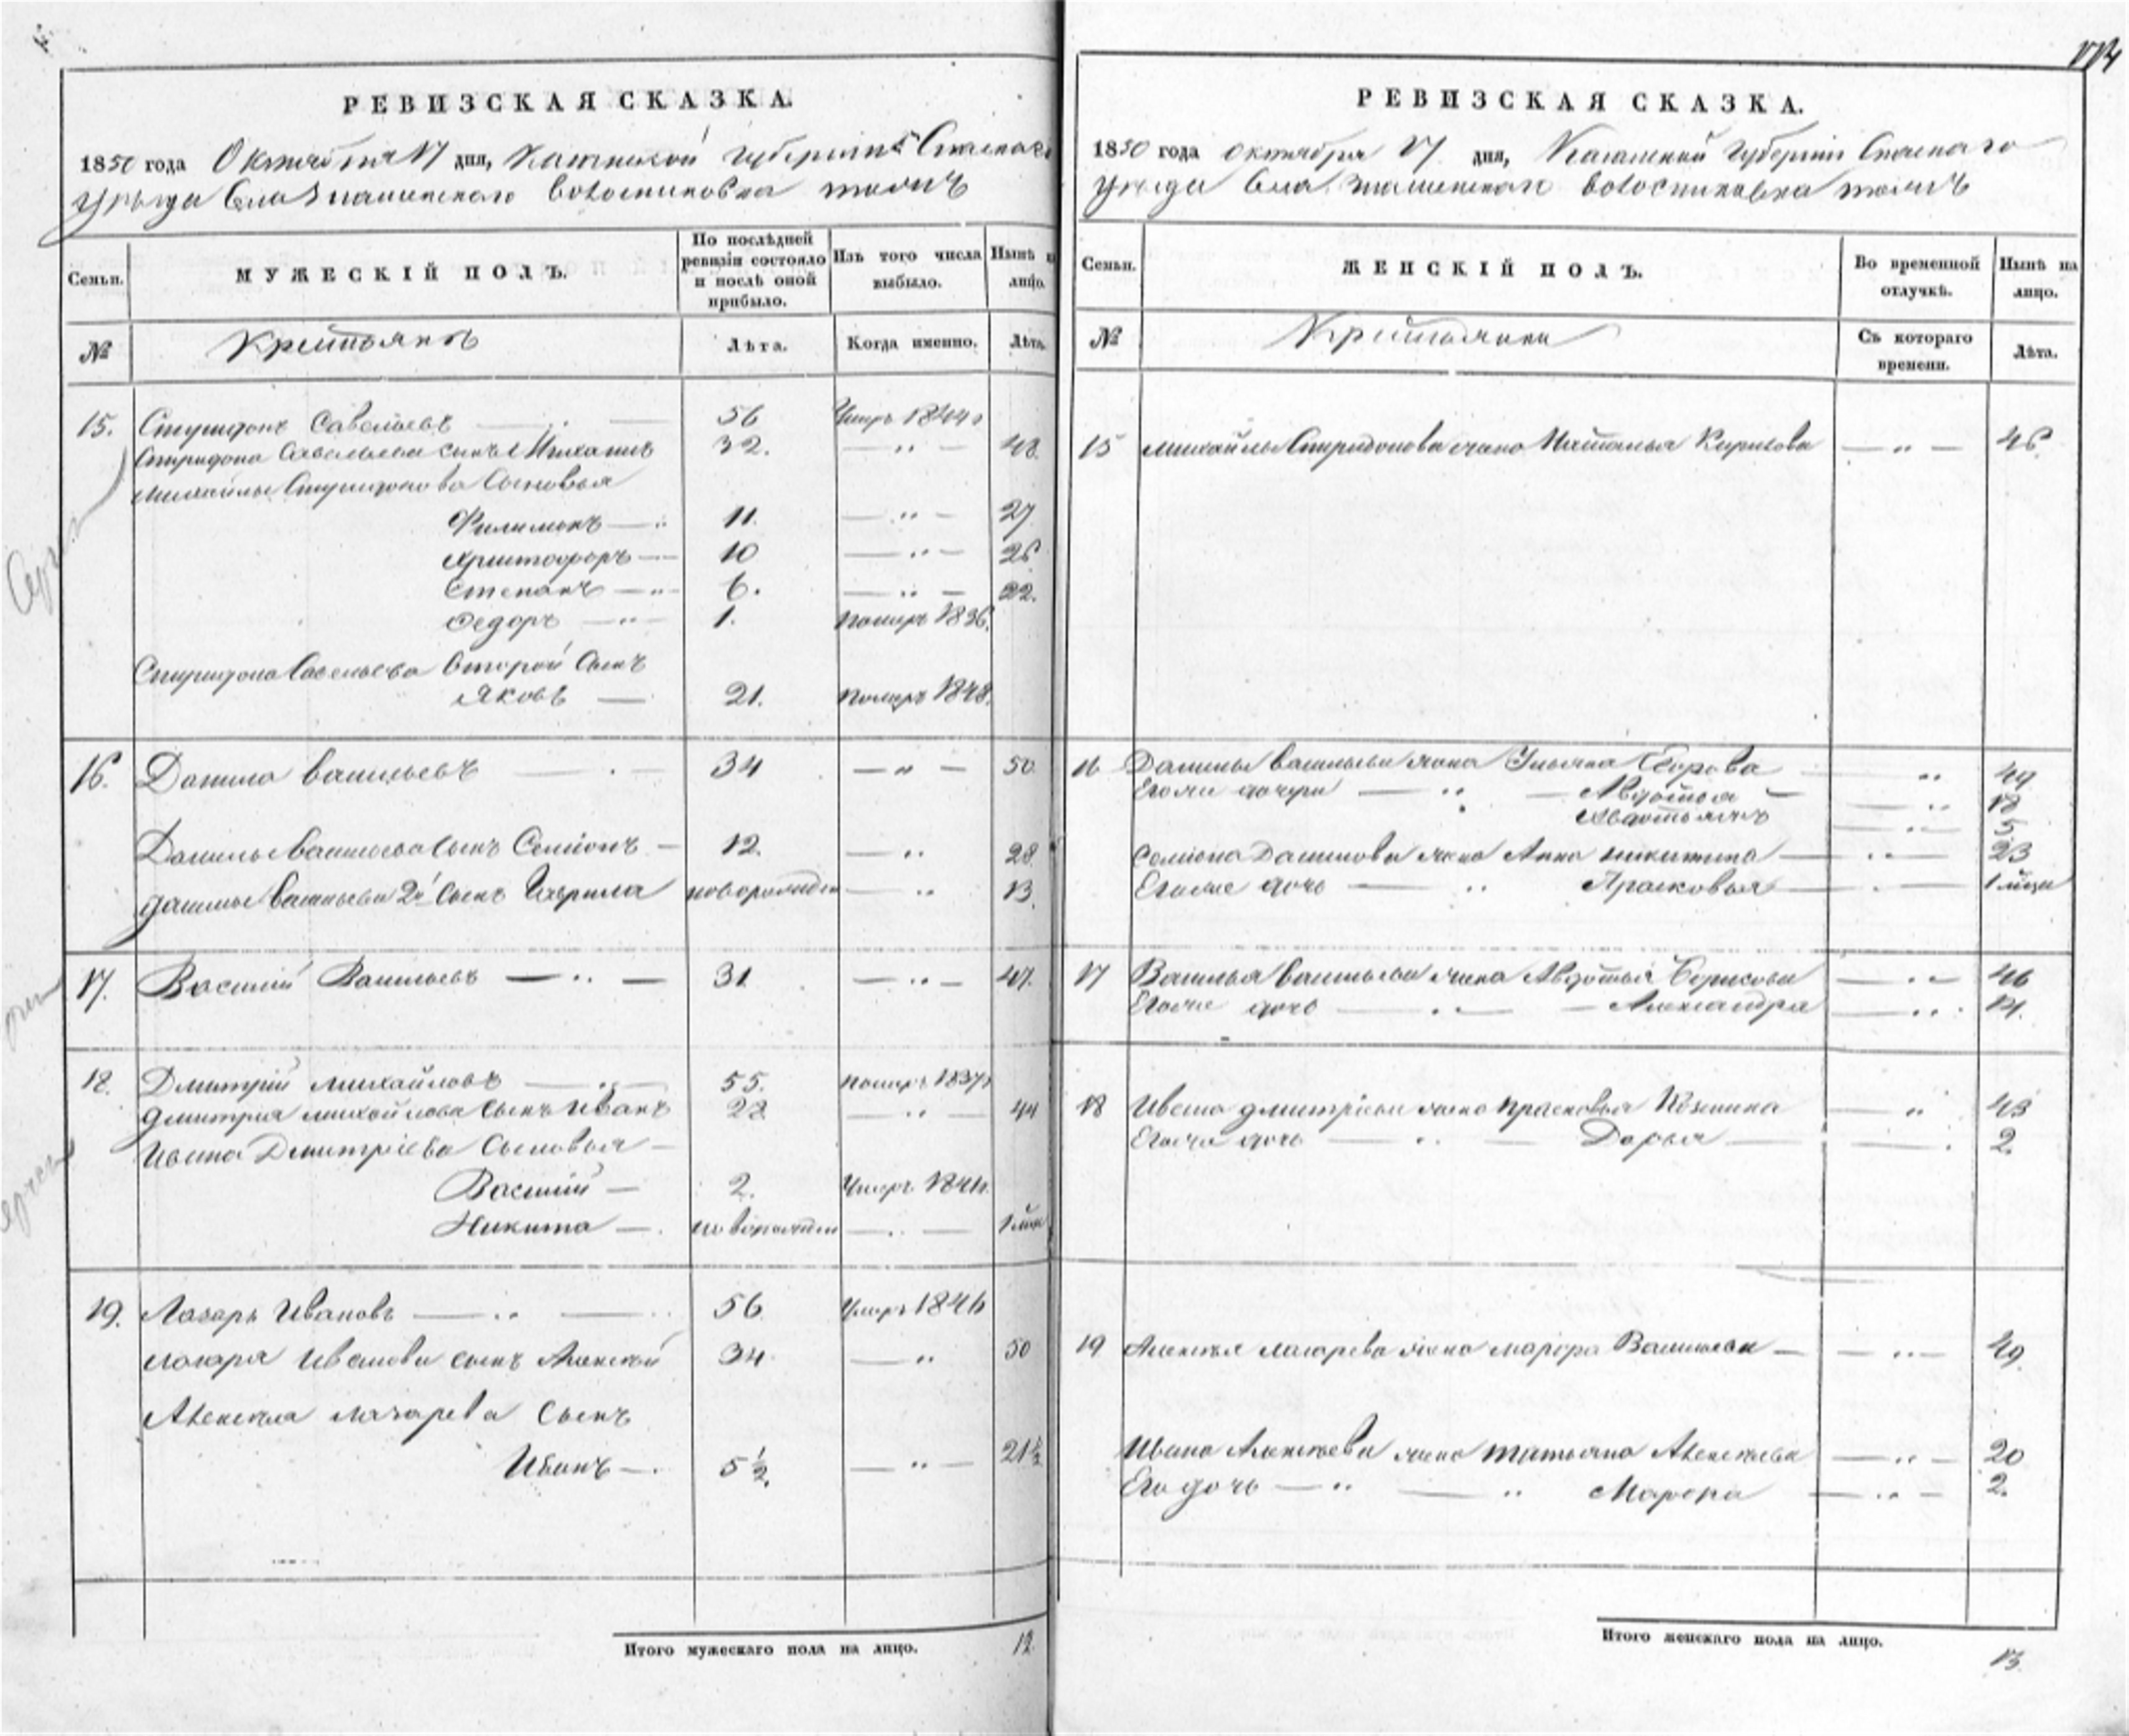 РЕВИЗСКАЯ СКАЗКА.
1850 года Октября 17 дня, Казанской губернии Спаскаго
уезда Села Знаменскаго
Семьи.
МУЖЕСКІЙ ПОЛЪ.
По послѣдней ревизіи состояло и послѣ оной прибыло.
Изъ того числа выбыло.
Нынѣ лицо.
№
Крестьянъ
Лѣта.
Когда именно.
Лѣта.
15. Спиридонъ Савельевъ 56 Умеръ 1844
Спиридона Савельева сынъ Михаилъ 32. — „ — 48.
Михайлы Спиридонова Сыновья
Филимонъ — 11. — „ — 27
Христофоръ — 10 — „ — 26
Степанъ — „ 6. — „ — 22.
Федоръ — „ 1. померъ 1836.
Спиридона Савельева второй Сынъ
Яковъ — 21. померъ 1848.
16. Данило Васильевъ 34 — „ — 50
Данилы Васильева Сынъ Семіонъ — 12. — „ 28
Данилы Васильева 2й Сынъ Гаврила — „ 13.
17. Василій Васильевъ — „ — 31 — „ — 47.
18. Дмитрій Михайловъ 55. померъ 1837
Дмитрия Михайлова Сынъ Иванъ 28 — „ — 44
Ивана Дмитріева Сыновья —
Василій — 2. Умеръ
Никита —
19. Лазарь Ивановъ — „ — 56 Умеръ 1846
Лазаря Иванова сынъ Алексей 34 — „ 50
Алексея Лазарева Сынъ
Иванъ — 5 1/2. — „ — 21 1/2
Итого мужескаго пола на лицо. 12.
РЕВИЗСКАЯ СКАЗКА.
1850 года октября 17 дня, Казанской Губерніи Спаскаго
уезда Села Знаменскаго
Семьи.
ЖЕНСКІЙ ПОЛЪ.
Во временной отлучкѣ.
Нынѣ на лицо.
№
Крестьянки
Съ котораго времени.
Лѣта.
15 Михайлы Спиридонова жена Наталья — „ — 46
16 Данилы Васильева жена Ульяна Егорова „ 49
Его же дочери — „ — Авдотья — „ 18
— „ 5
Семіона Данилова жена Анна Никитина — „ — 23
Его же дочь — „ Прасковья
17 Василья Васильева жена Авдотья Борисова — „ — 46
Его же дочь — „ — Александра — „ 14.
18 Ивана Дмитріева жена Прасковья — „ 43
Его же дочь — „ — Дарья — 2.
19 Алексея Лазарева жена Марфра Васильева — — „ — 49.
Ивана Алексеева жена Татьяна Алексеева — „ — 20
Его дочь — „ — „ Марфра — „ — 2.
Итого женскаго пола на лицо.
13.